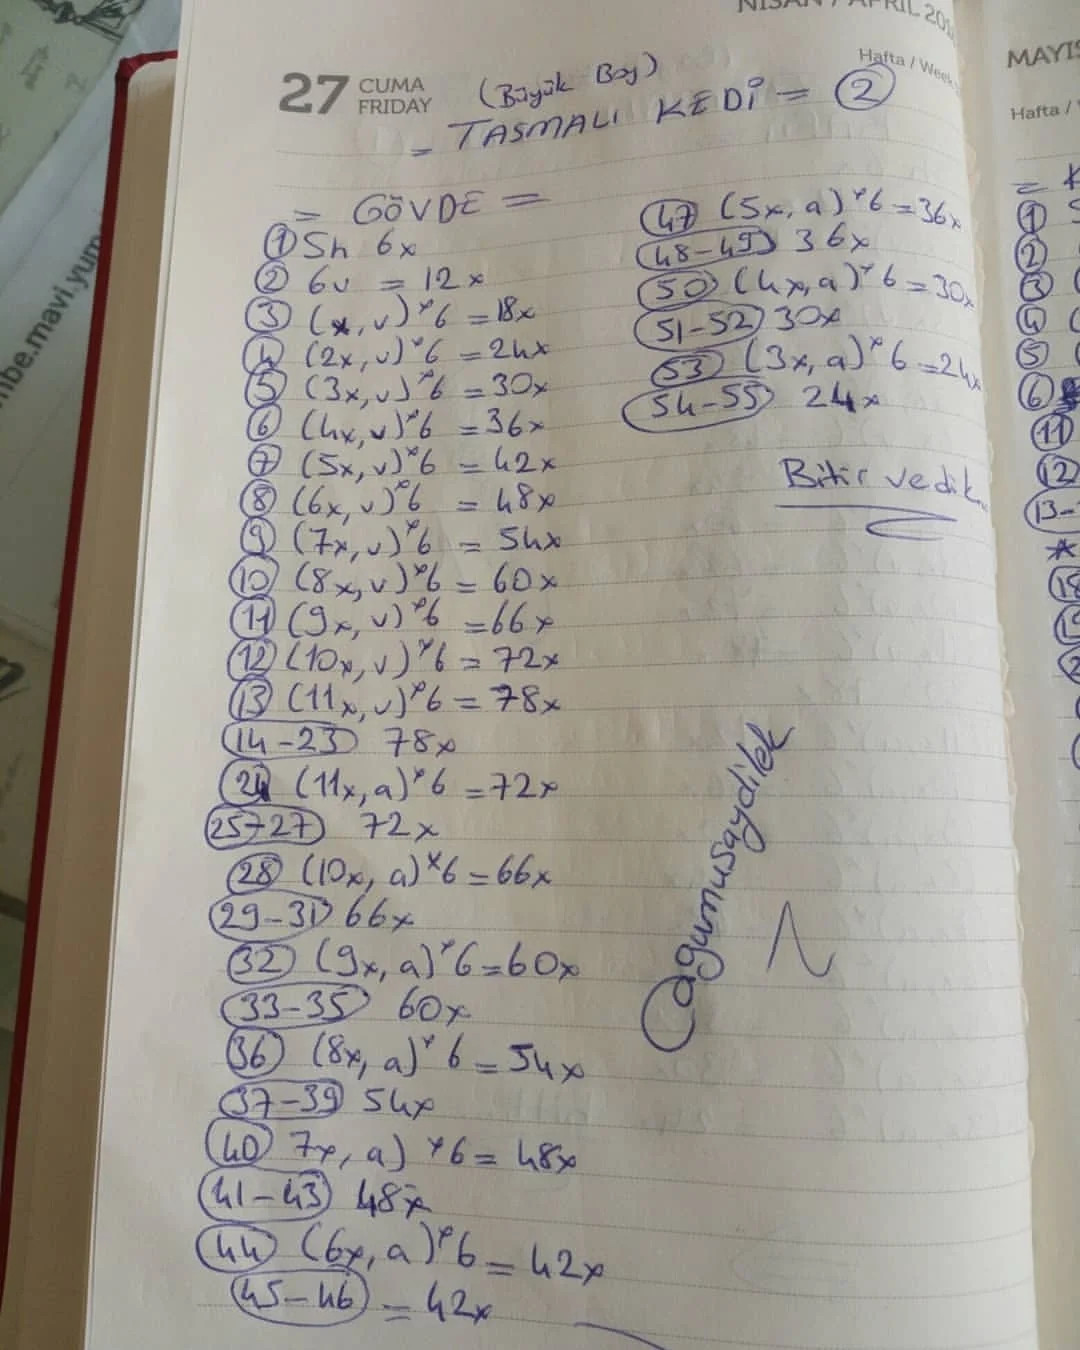 NİSAN / APRIL
Hafta / Week
27 CUMA
FRIDAY
(Büyük Boy)
= TASMALI KEDİ = 2
= GÖVDE =
1 Sh 6x
2 6v = 12x
3 (x, v)*6 = 18x
4 (2x, v)*6 = 24x
5 (3x, v)*6 = 30x
6 (4x, v)*6 = 36x
7 (5x, v)*6 = 42x
8 (6x, v)*6 = 48x
9 (7x, v)*6 = 54x
10 (8x, v)*6 = 60x
11 (9x, v)*6 = 66x
12 (10x, v)*6 = 72x
13 (11x, v)*6 = 78x
14-23 78x
24 (11x, a)*6 = 72x
25-27 72x
28 (10x, a)*6 = 66x
29-31 66x
32 (9x, a)*6 = 60x
33-35 60x
36 (8x, a)*6 = 54x
37-39 54x
40 7x, a) *6 = 48x
41-43 48x
44 (6x, a)*6 = 42x
45-46 = 42x
47 (5x, a)*6 = 36x
48-49 36x
50 (4x, a)*6 = 30x
51-52 30x
53 (3x, a)*6 = 24x
54-55 24x
Bitir ve dik
Cagumusaydilek
MAYIS
Hafta /
1
2
3
4
5
6
11
12
13-